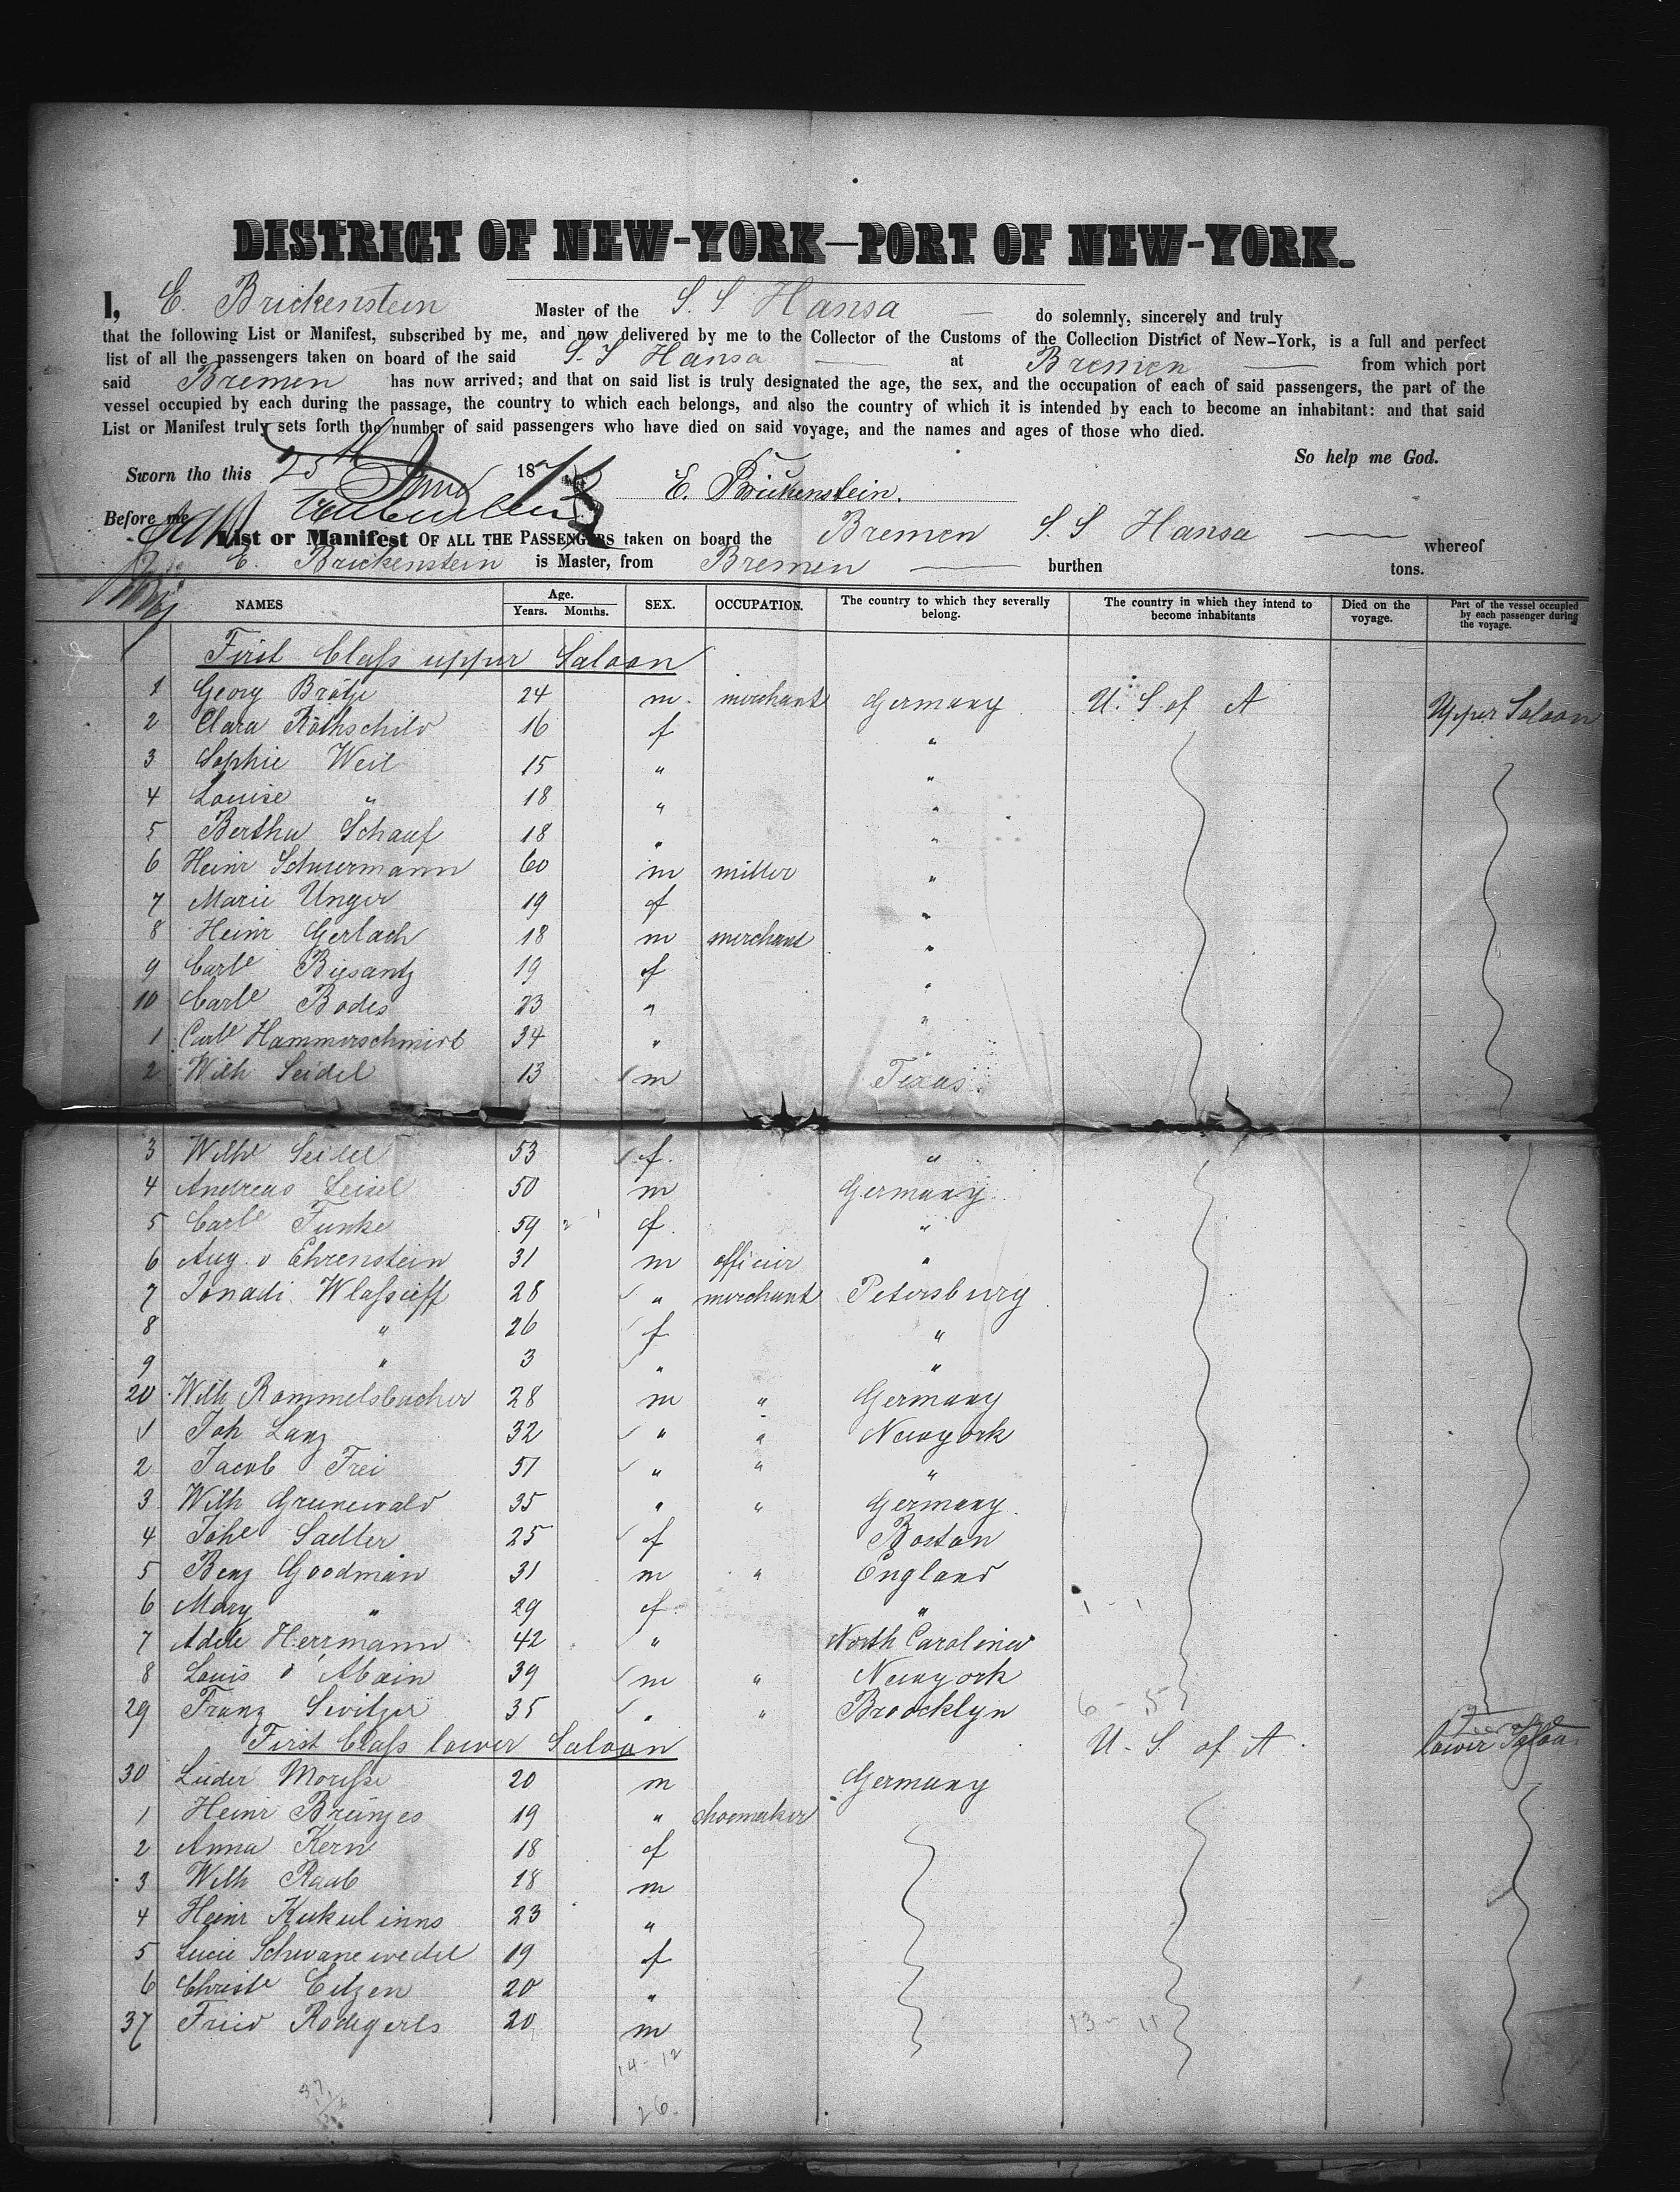 DISTRICT OF NEW-YORK—PORT OF NEW-YORK.
I, E. Brickenstein Master of the S. S Hansa — do solemnly, sincerely and truly
that the following List or Manifest, subscribed by me, and now delivered by me to the Collector of the Customs of the Collection District of New-York, is a full and perfect
list of all the passengers taken on board of the said S. S Hansa — at Bremen — from which port
said Bremen has now arrived; and that on said list is truly designated the age, the sex, and the occupation of each of said passengers, the part of the
vessel occupied by each during the passage, the country to which each belongs, and also the country of which it is intended by each to become an inhabitant: and that said
List or Manifest truly sets forth the number of said passengers who have died on said voyage, and the names and ages of those who died.
So help me God.
Sworn tho this 25th June 187 E. Brickenstein.
Before me
List or Manifest OF ALL THE PASSENGERS taken on board the Bremen S. S Hansa — whereof
E. Brickenstein is Master, from Bremen — burthen tons.
NAMES Age. Years. Months. SEX. OCCUPATION. The country to which they severally belong. The country in which they intend to become inhabitants Died on the voyage. Part of the vessel occupied by each passenger during the voyage.
First Class upper Saloon
1 Georg Brötje 24 m. merchant Germany U. S. of A Upper Saloon
2 Clara Rothschild 16 f "
3 Sophie Weil 15 " "
4 Louise " 18 " "
5 Bertha Schauf 18 " "
6 Heinr Schuermann 60 m miller "
7 Marie Unger 19 f "
8 Heinr Gerlach 18 m merchant "
9 Carle Biesantz 19 f "
10 Carle Bodes 23 " "
1 Carle Hammerschmidt 34 " "
2 Wilh Seidel 13 m Texas.
3 Wilhe Seidel 53 f. "
4 Andreas Seisel 50 m Germany
5 Carle Funke 59 f. "
6 Aug. v Ehrenstein 31 m officier "
7 Jonadi Wlassieff 28 " merchant Petersburg
8 " 26 f "
9 " 3 " "
20 Wilh Rommelsbacher 28 m " Germany
1 Joh Lanz 32 " " Newyork
2 Jacob Frei 51 " " "
3 Wilh Grunewald 35 " " Germany
4 Johe Sadler 25 f Boston
5 Benj Goodman 31 m " England
6 Mary " 29 f "
7 Adele Herrmann 42 " North Carolina
8 Louis d' Abain 39 m " Newyork
29 Franz Sivitzer 35 " " Broocklyn 6 - 5
First Class lower Saloon U. S. of A. lower Saloon
30 Luder Morisse 20 m Germany
1 Heinr Brünjes 19 " shoemaker
2 Anna Kern 18 f
3 Wilh Raab 18 m
4 Heinr Kukulinns 23 "
5 Lucie Schwanewedel 19 f
6 Christe Eitzen 20 "
37 Fried Rodegerls 20 m 13 - 11
14 - 12
37
26.